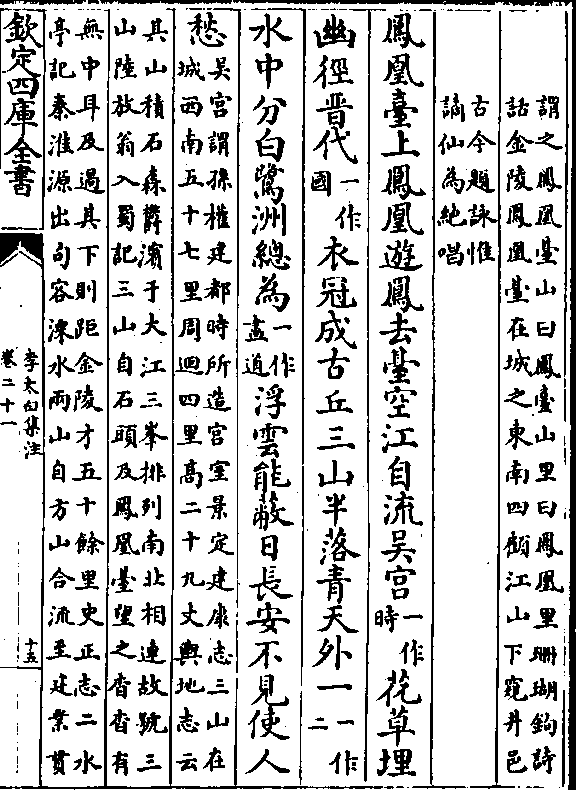 謂之鳳凰臺山曰鳳臺山里曰鳳凰里珊瑚鉤詩
話金陵鳳凰臺在城之東南四顧江山下窺井邑
古今題詠惟
謫仙為絶唱
鳳凰臺上鳳凰遊鳳去臺空江自流吳宫一作時花草埋
幽徑晉代一作國衣冠成古丘三山半落青天外一一作二
水中分白鷺洲總為一作盡道浮雲能蔽日長安不見使人
愁吳宫謂孫權建都時所造宫室景定建康志三山在
城西南五十七里周迴四里高二十九丈輿地志云
其山積石森欝濱于大江三峯排列南北相連故號三
山陸放翁入蜀記三山自石頭及鳳凰臺望之杳杳有
無中耳及過其下則距金陵才五十餘里史正志二水
亭記秦淮源出句容溧水兩山自方山合流至建業貫
欽定四庫全書
李太白集注
卷二十一
十五